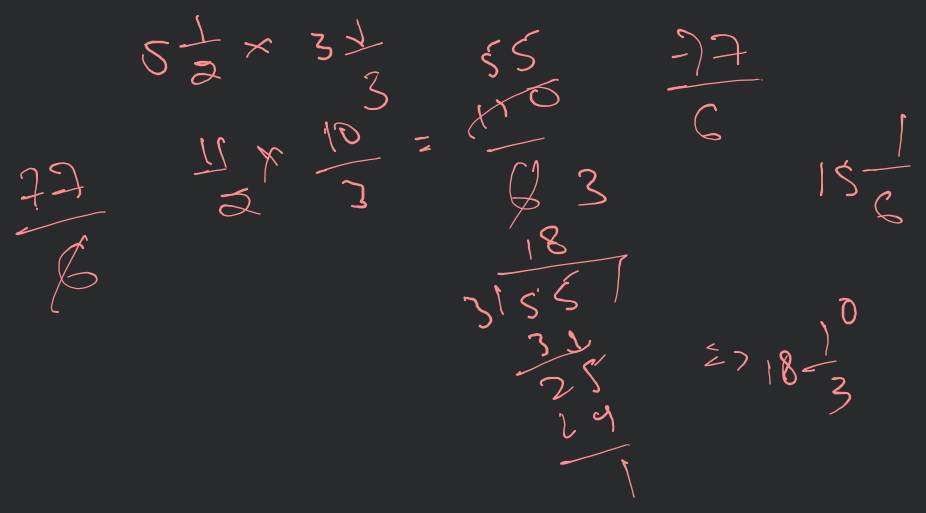 5 1/2 × 3 1/3
11/2 × 10/3 = 110/6
55
3
77/6
77/6
15 1/6
18
3 | 55
3
25
24
1
=> 18 1/3
0